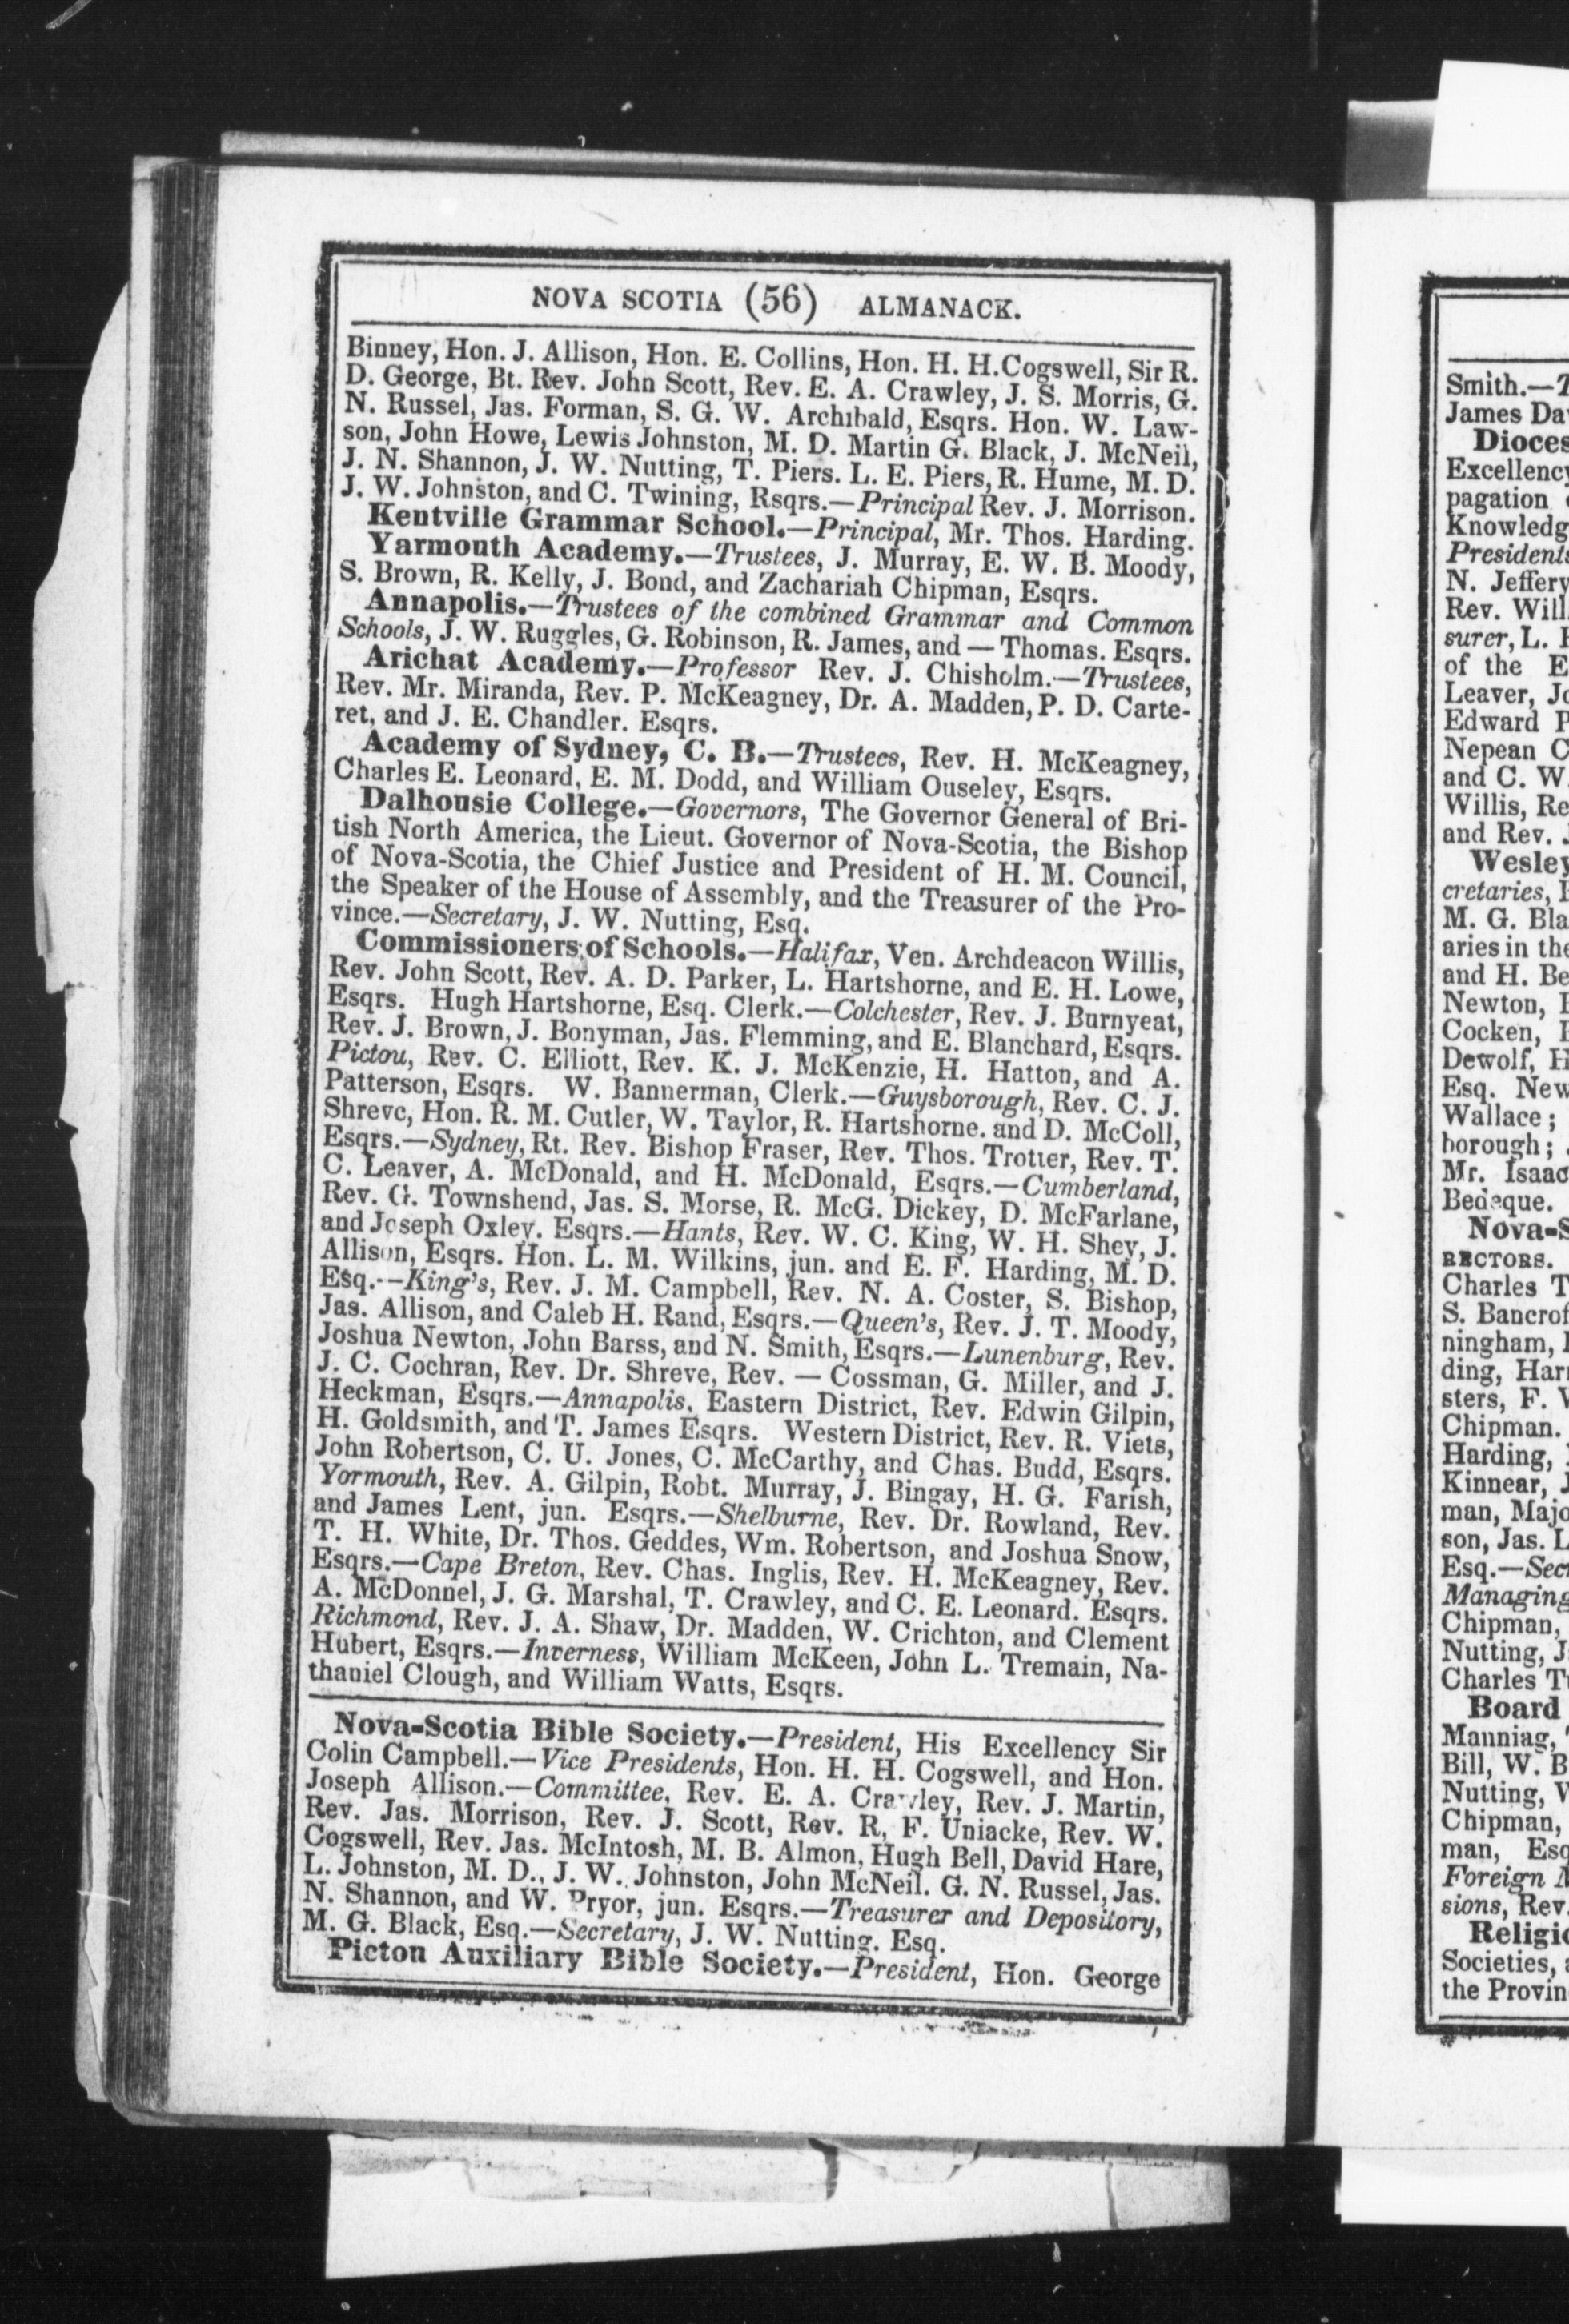 NOVA SCOTIA (56) ALMANACK.
Binney, Hon. J. Allison, Hon. E. Collins, Hon. H. H. Cogswell, Sir R.
D. George, Bt. Rev. John Scott, Rev. E. A. Crawley, J. S. Morris, G.
N. Russel, Jas. Forman, S. G. W. Archibald, Esqrs. Hon. W. Law-
son, John Howe, Lewis Johnston, M. D. Martin G. Black, J. McNeil,
J. N. Shannon, J. W. Nutting, T. Piers. L. E. Piers, R. Hume, M. D.
J. W. Johnston, and C. Twining, Rsqrs.—Principal Rev. J. Morrison.
Kentville Grammar School.—Principal, Mr. Thos. Harding.
Yarmouth Academy.—Trustees, J. Murray, E. W. B. Moody,
S. Brown, R. Kelly, J. Bond, and Zachariah Chipman, Esqrs.
Annapolis.—Trustees of the combined Grammar and Common
Schools, J. W. Ruggles, G. Robinson, R. James, and — Thomas. Esqrs.
Arichat Academy.—Professor Rev. J. Chisholm.—Trustees,
Rev. Mr. Miranda, Rev. P. McKeagney, Dr. A. Madden, P. D. Carte-
ret, and J. E. Chandler. Esqrs.
Academy of Sydney, C. B.—Trustees, Rev. H. McKeagney,
Charles E. Leonard, E. M. Dodd, and William Ouseley, Esqrs.
Dalhousie College.—Governors, The Governor General of Bri-
tish North America, the Lieut. Governor of Nova-Scotia, the Bishop
of Nova-Scotia, the Chief Justice and President of H. M. Council,
the Speaker of the House of Assembly, and the Treasurer of the Pro-
vince.—Secretary, J. W. Nutting, Esq.
Commissioners of Schools.—Halifax, Ven. Archdeacon Willis,
Rev. John Scott, Rev. A. D. Parker, L. Hartshorne, and E. H. Lowe,
Esqrs. Hugh Hartshorne, Esq. Clerk.—Colchester, Rev. J. Burnyeat,
Rev. J. Brown, J. Bonyman, Jas. Flemming, and E. Blanchard, Esqrs.
Pictou, Rev. C. Elliott, Rev. K. J. McKenzie, H. Hatton, and A.
Patterson, Esqrs. W. Bannerman, Clerk.—Guysborough, Rev. C. J.
Shreve, Hon. R. M. Cutler, W. Taylor, R. Hartshorne. and D. McColl,
Esqrs.—Sydney, Rt. Rev. Bishop Fraser, Rev. Thos. Trotter, Rev. T.
C. Leaver, A. McDonald, and H. McDonald, Esqrs.—Cumberland,
Rev. G. Townshend, Jas. S. Morse, R. McG. Dickey, D. McFarlane,
and Joseph Oxley. Esqrs.—Hants, Rev. W. C. King, W. H. Shey, J.
Allison, Esqrs. Hon. L. M. Wilkins, jun. and E. F. Harding, M. D.
Esq.--King's, Rev. J. M. Campbell, Rev. N. A. Coster, S. Bishop,
Jas. Allison, and Caleb H. Rand, Esqrs.—Queen's, Rev. J. T. Moody,
Joshua Newton, John Barss, and N. Smith, Esqrs.—Lunenburg, Rev.
J. C. Cochran, Rev. Dr. Shreve, Rev. — Cossman, G. Miller, and J.
Heckman, Esqrs.—Annapolis, Eastern District, Rev. Edwin Gilpin,
H. Goldsmith, and T. James Esqrs. Western District, Rev. R. Viets,
John Robertson, C. U. Jones, C. McCarthy, and Chas. Budd, Esqrs.
Yormouth, Rev. A. Gilpin, Robt. Murray, J. Bingay, H. G. Farish,
and James Lent, jun. Esqrs.—Shelburne, Rev. Dr. Rowland, Rev.
T. H. White, Dr. Thos. Geddes, Wm. Robertson, and Joshua Snow,
Esqrs.—Cape Breton, Rev. Chas. Inglis, Rev. H. McKeagney, Rev.
A. McDonnel, J. G. Marshal, T. Crawley, and C. E. Leonard. Esqrs.
Richmond, Rev. J. A. Shaw, Dr. Madden, W. Crichton, and Clement
Hubert, Esqrs.—Inverness, William McKeen, John L. Tremain, Na-
thaniel Clough, and William Watts, Esqrs.
Nova-Scotia Bible Society.—President, His Excellency Sir
Colin Campbell.—Vice Presidents, Hon. H. H. Cogswell, and Hon.
Joseph Allison.—Committee, Rev. E. A. Crawley, Rev. J. Martin,
Rev. Jas. Morrison, Rev. J. Scott, Rev. R. F. Uniacke, Rev. W.
Cogswell, Rev. Jas. McIntosh, M. B. Almon, Hugh Bell, David Hare,
L. Johnston, M. D., J. W. Johnston, John McNeil. G. N. Russel, Jas.
N. Shannon, and W. Pryor, jun. Esqrs.—Treasurer and Depository,
M. G. Black, Esq.—Secretary, J. W. Nutting. Esq.
Pictou Auxiliary Bible Society.—President, Hon. George
Smith.—
James Da
Dioces
Excellency
pagation
Knowledg
Presidents
N. Jeffery
Rev. Will
surer, L.
of the E
Leaver, Jo
Edward P
Nepean C
and C. W.
Willis, Re
and Rev.
Wesley
cretaries,
M. G. Bla
aries in the
and H. Be
Newton,
Cocken,
Dewolf, H
Esq. New
Wallace;
borough;
Mr. Isaac
Bedeque.
Nova-S
RECTORS.
Charles T
S. Bancrof
ningham,
ding, Har
sters, F.
Chipman.
Harding,
Kinnear,
man, Majo
son, Jas. L
Esq.—Sec
Managing
Chipman,
Nutting, J
Charles T
Board
Manniag,
Bill, W. B
Nutting,
Chipman,
man, Esq
Foreign
sions, Rev.
Religio
Societies,
the Provin